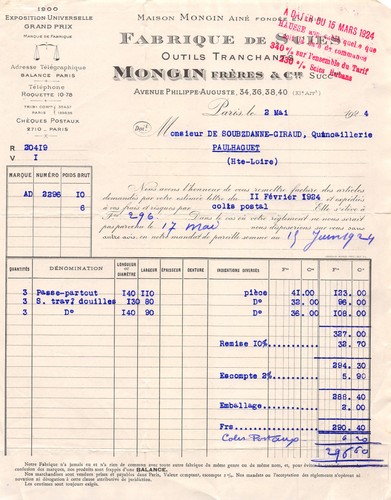 1900
EXPOSITION UNIVERSELLE
GRAND PRIX
MARQUE DE FABRIQUE
Adresse Télégraphique
BALANCE PARIS
Téléphone
ROQUETTE 10-78
CHÈQUES POSTAUX
8710 _ PARIS
MAISON MONGIN AINÉ FONDÉE
FABRIQUE DE SCIES
OUTILS TRANCHANTS
MONGIN FRÈRES & Cie Succrs
AVENUE PHILIPPE-AUGUSTE, 34,36,38,40 (XIe ARRt)
A DATER DU 15 MARS 1924
340 % sur l'ensemble du Tarif
Paris, le 2 Mai 1924
Doi!
Monsieur DE SOUBEZDANNE-GIRAUD, Quincaillerie
PAULHAGUET
(Hte-Loire)
R 20419
V I
MARQUE NUMÉRO POIDS BRUT
AD 2296 10
6
Nous avons l'honneur de vous remettre facture des articles
demandés par votre estimée lettre du 11 Février 1924 et expédiés
à vos frais et risques par colis postal Elle s'élève à
Frs 296. Dans le cas où votre règlement ne nous serait
pas parvenu le 17 mai nous disposerions sur vous sans
autre avis, en notre mandat de pareille somme au 15 Juin 1924
QUANTITÉS DÉNOMINATION LONGUEUR OU DIAMÈTRE LARGEUR ÉPAISSEUR DENTURE INDICATIONS DIVERSES Frs Cs Frs Cs
3 Passe-partout 140 110 pièce 41.00 123.00
3 S. trav? douilles 130 80 D° 32.00 96.00
3 D° 140 90 D° 36.00 108.00
327.00
Remise 10% 32.70
294.30
Escompte 2% 5.90
288.40
Emballage 2.00
Frs 290.40
Colis Postaux 6.20
296.60
Notre Fabrique n'a jamais eu et n'a rien de commun avec toute autre fabrique du même genre ou du même nom, et, pour éviter
confusion des marques, nos produits sont frappés d'une BALANCE.
Nos marchandises sont vendues prises et payables dans Paris, Valeur comptant, escompte 2 %. Nos mandats ou l'acceptation de règlements n'opèrent ni
novation ni dérogation à cette clause attributive de juridiction.
Les caisses sont toujours exigées.